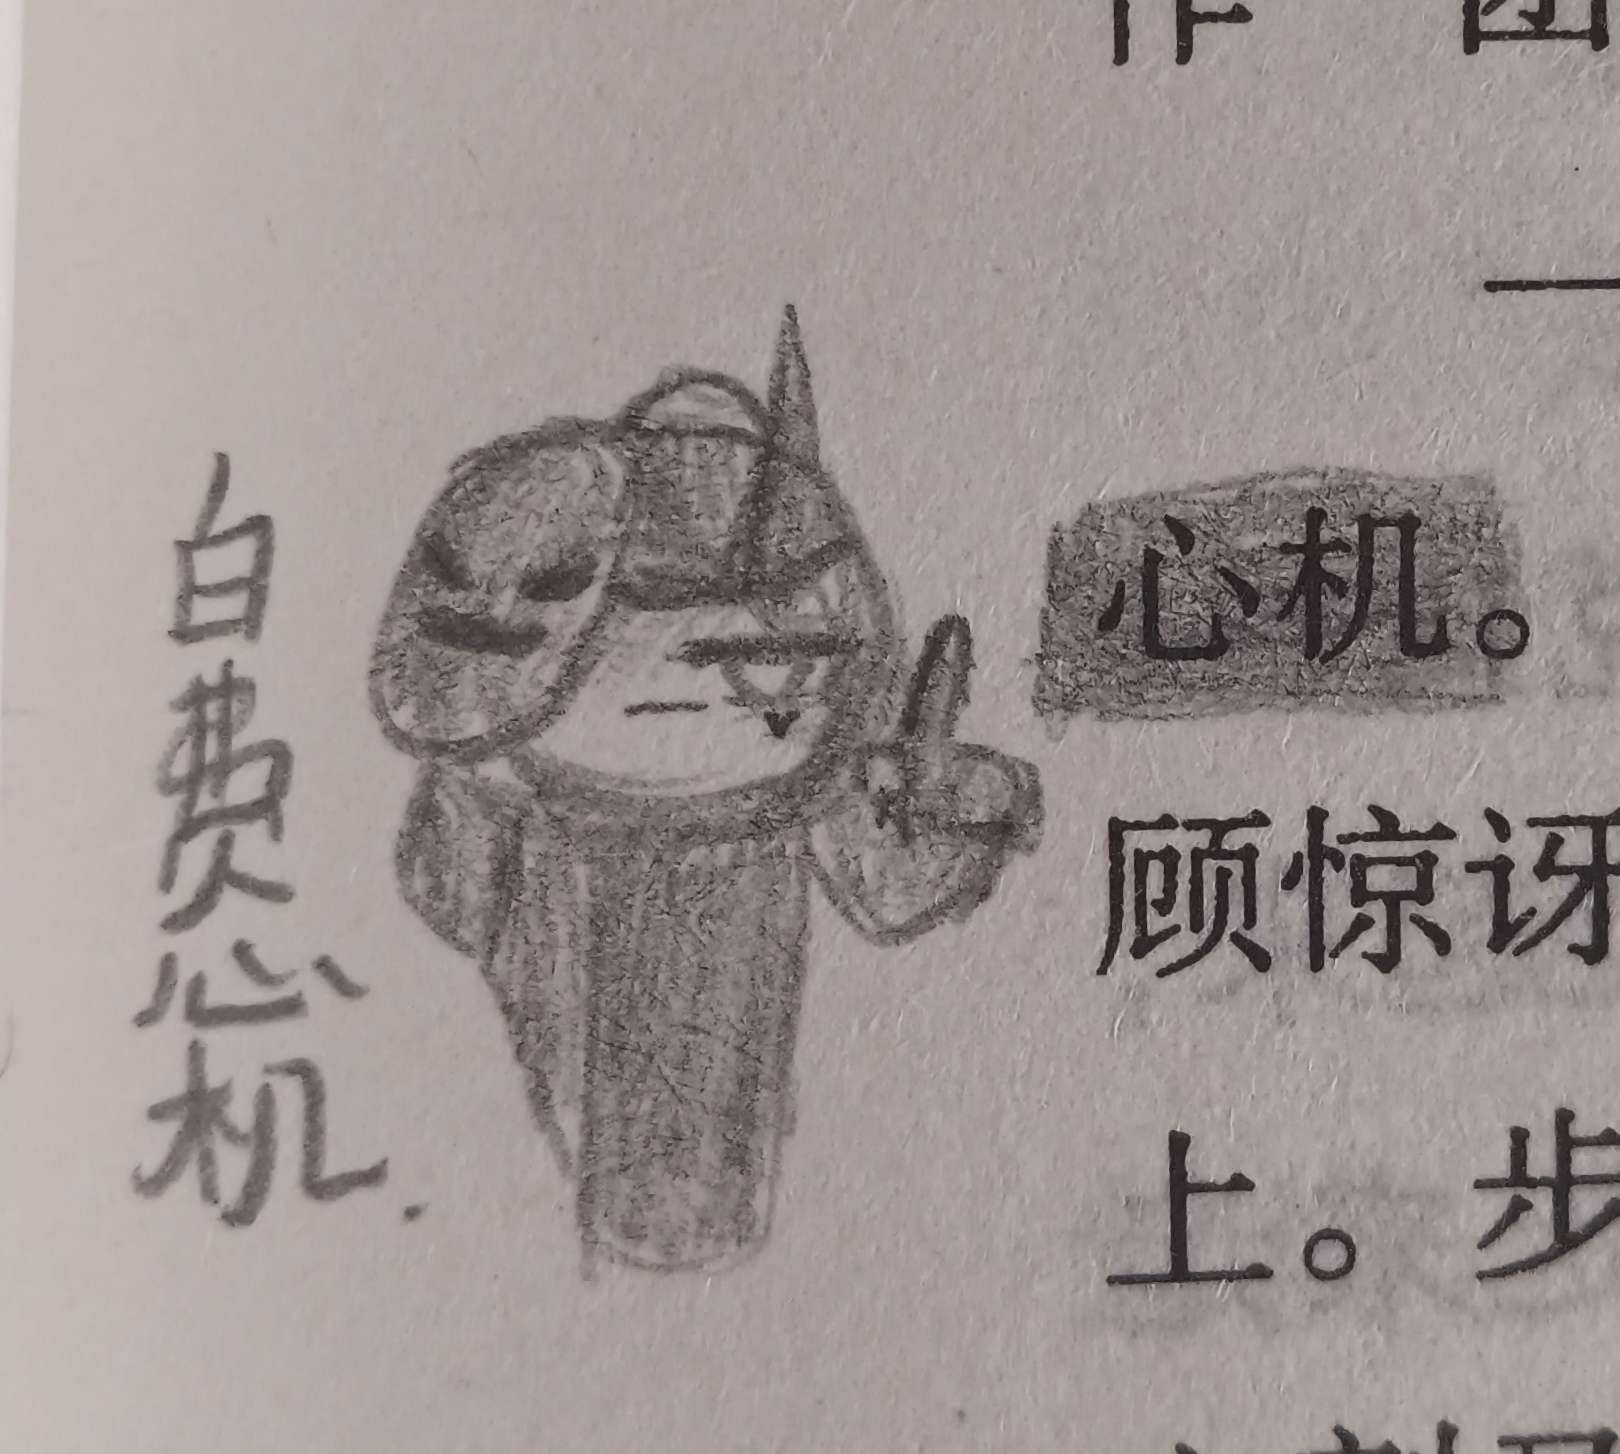 白费心机.
作
一
心机。
顾惊讶
上。步